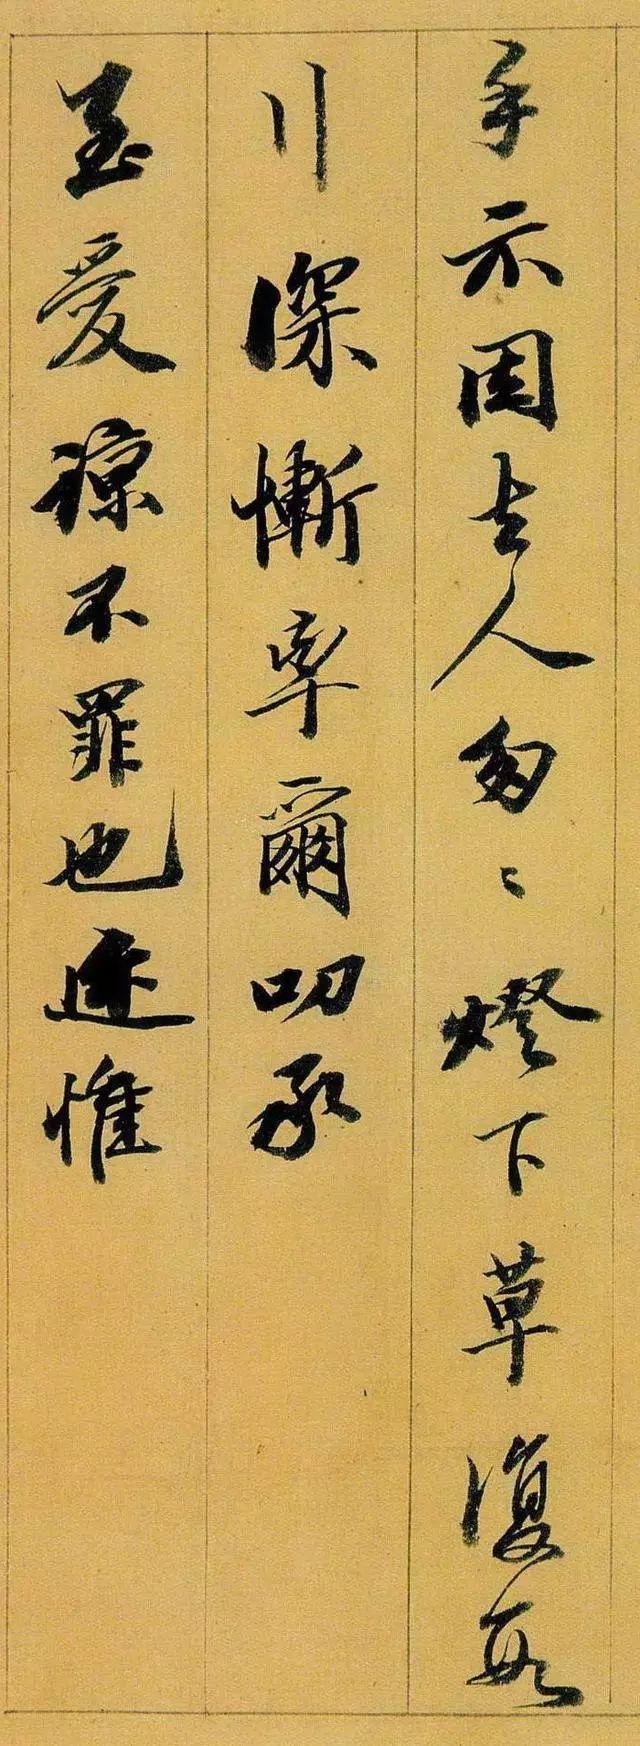 手示因去人匆〻燈下草復敬
川深慚率爾叨承
至愛諒不罪也迹惟